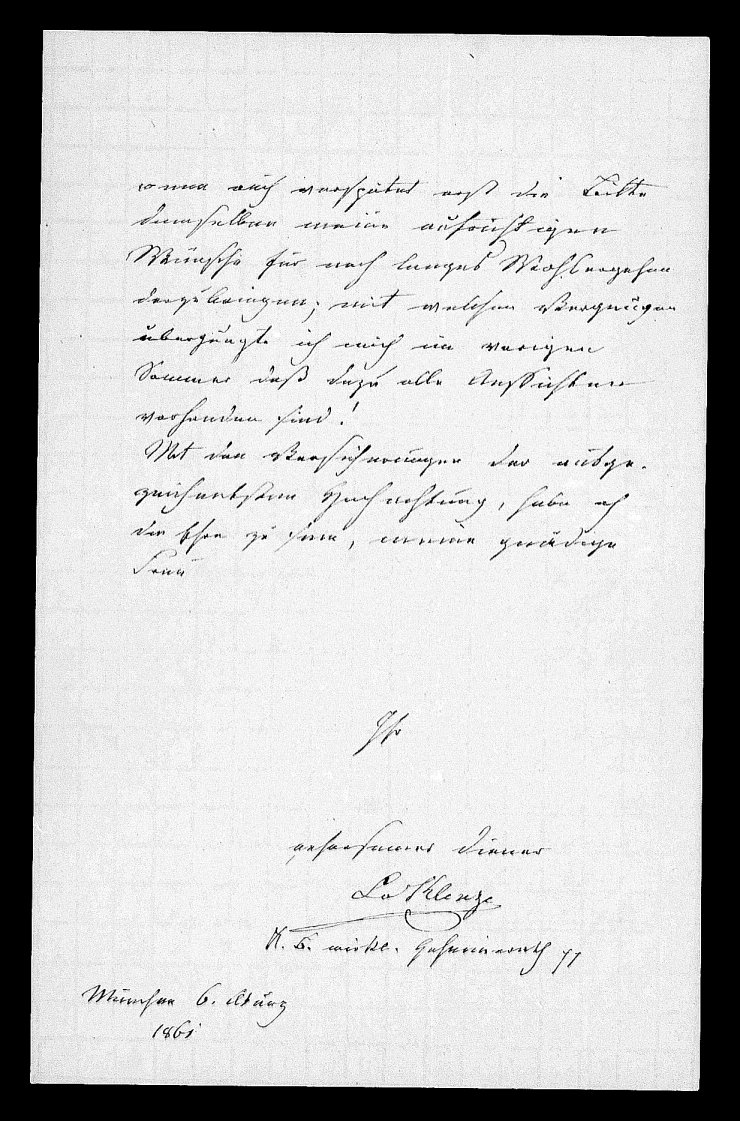 wenn auch verspätet erst die Bitte
demselben meine aufrichtigen
Wünsche für noch langes Wohlergehen
darzubringen; mit welchen Vergnügen
überzeugte ich mich im vorigen
Sommer daß dazu alle Aussichten
vorhanden sind!
Mit den Versicherungen der ausge-
zeichnetsten Hochachtung, habe ich
die Ehre zu sein, meine gnädige
Frau
Ihr
gehorsamer Diener
Lv Klenze
K. B. wirkl. Geheimerath
München 6. März
1861